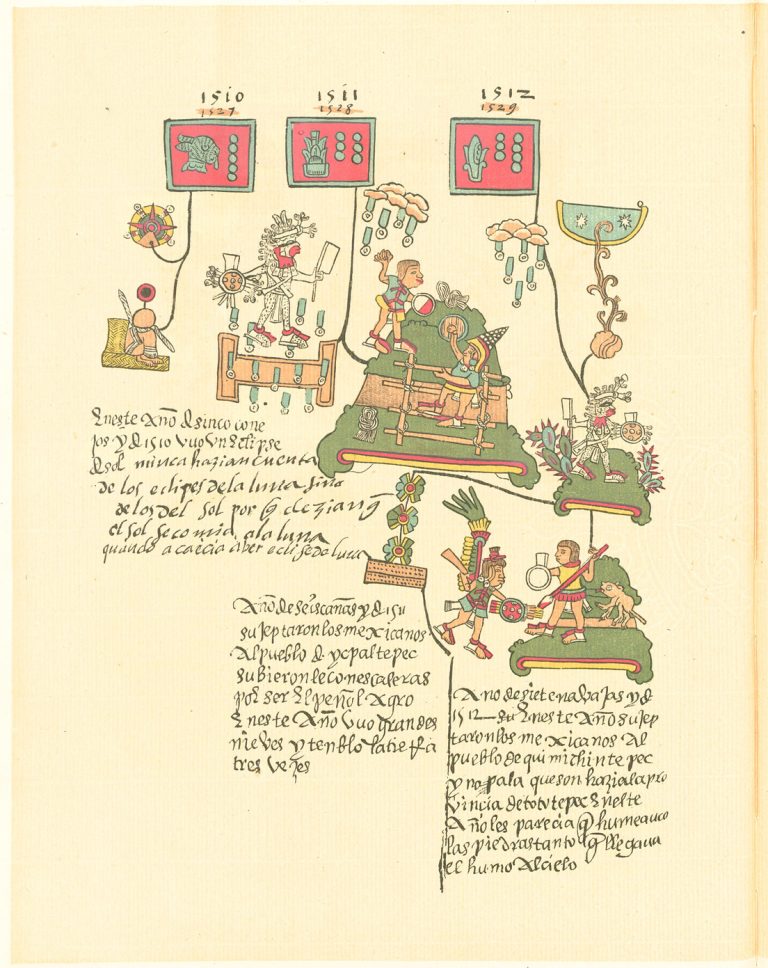 1510
1527
1511
1528
1512
1529
Eneste Año d sinco cone
jos y d 1510 vuo vn Eclipse
d sol nunca hazian cuenta
de los eclipes de la luna sino
de los del sol por q dezian q
el sol se comia a la luna
quando acaecia aber eclise de luna
Año de seis cañas y d 1511
sujeptaron los mexicanos
Al pueblo d ycpaltepec
subieronle con escaleras
por ser El peñol Agro
Eneste Año vuo grandes
nieves y tenblo la tierra
tres vezes
Año de siete navajas y d
1512 Eneste Año sujep
taron los mexicanos Al
pueblo de quimichintepec
y nopala que son hazia la pro
vincia de tototepec Eneste
Año les parecia q humeauã
las piedras tanto q llegaua
el humo Al cielo